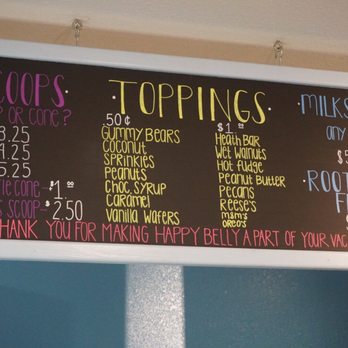 COOPS
P OR CONE?
3.25
4.25
5.25
CONE - $1.00
SCOOP - $2.50
TOPPINGS
50¢
GUMMY BEARS
COCONUT
SPRINKLES
PEANUTS
CHOC. SYRUP
CARAMEL
VANILLA WAFERS
$1.00
HEATH BAR
WET WALNUTS
HOT FUDGE
PEANUT BUTTER
PECANS
REESE'S
M&M'S
OREO'S
MILKS
any
$5
ROOT
F
$
HANK YOU FOR MAKING HAPPY BELLY A PART OF YOUR VAC